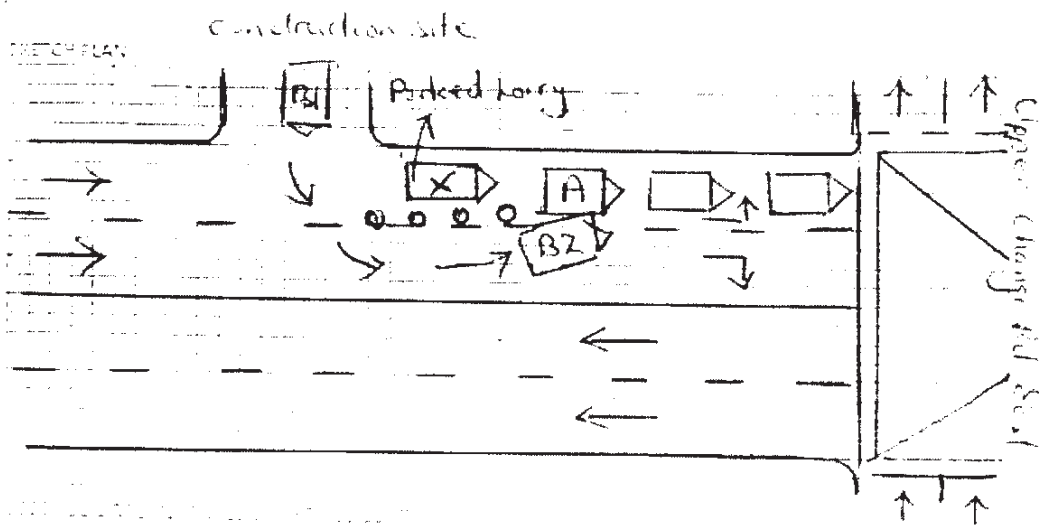 Construction site
SKETCH PLAN
B1
Parked Lorry
X
A
B2
Upper Changi Rd